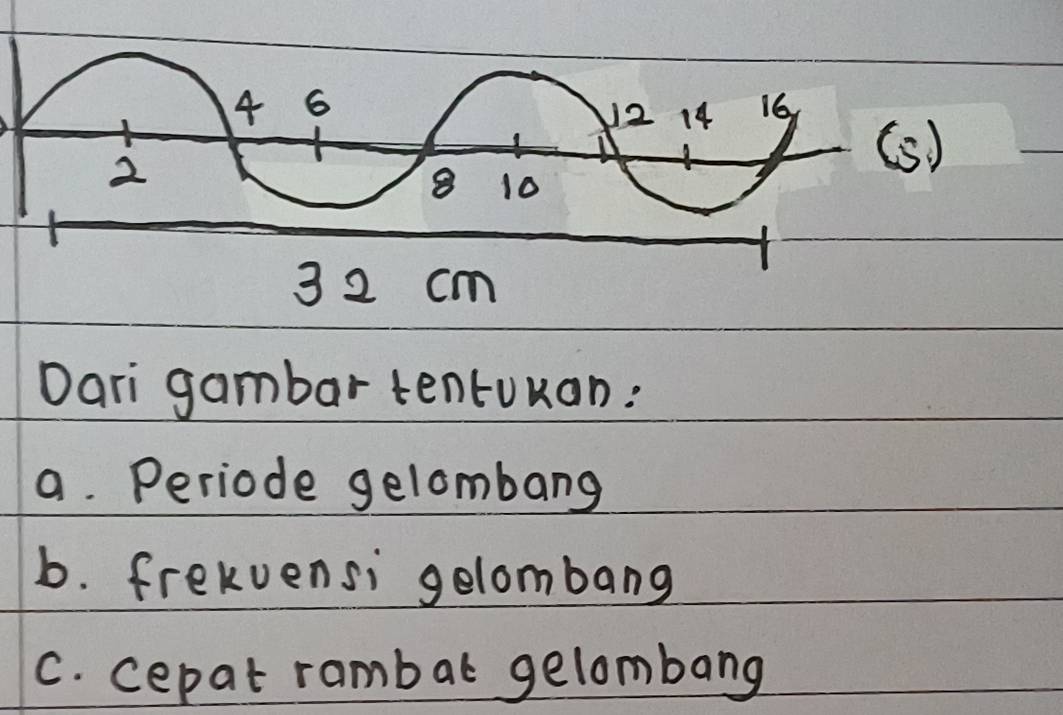 4 6 12 14 16 (s)
2 8 10
32 cm
Dari gambar tentukan:
a. Periode gelombang
b. frekuensi gelombang
c. cepat rambat gelombang